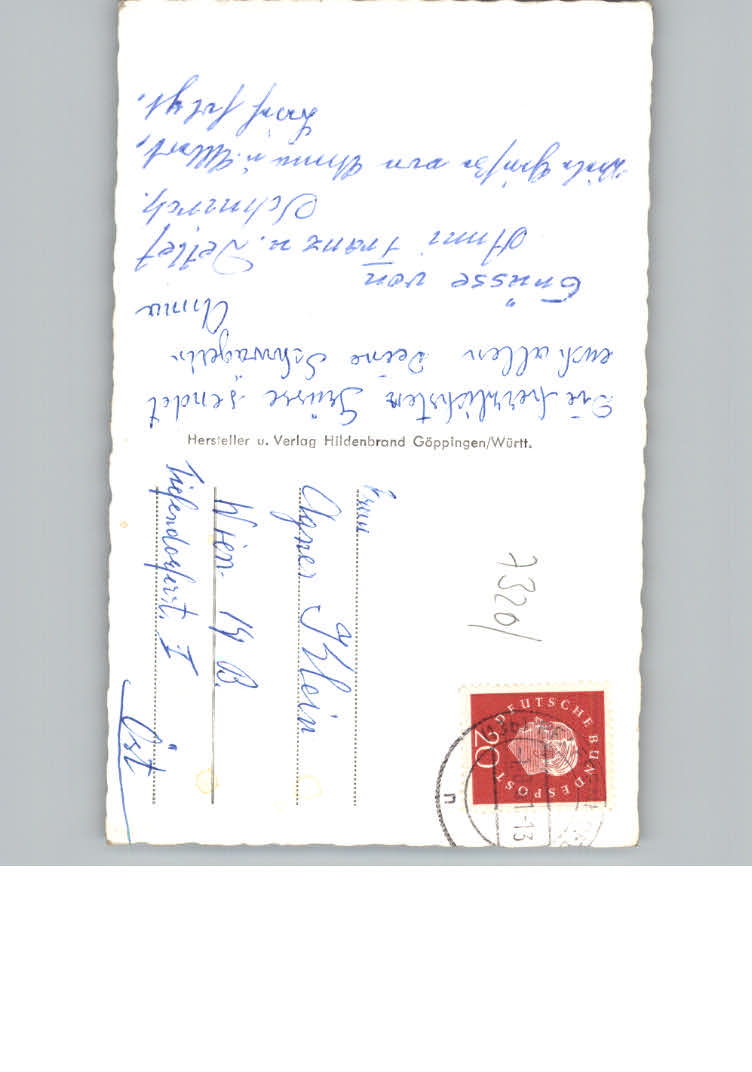 Die herzlichsten Grüsse sendet
euch allen Deine Schwägerin
Anna
Grüsse von
Anni Franz u. Detlef
Viele Grüße von Anna u.
Brief folgt.
Hersteller u. Verlag Hildenbrand Göppingen/Württ.
Frau
Agnes Klein
Wien 19 B.
I
Öst
7320/
DEUTSCHE BUNDESPOST
20
-13
n